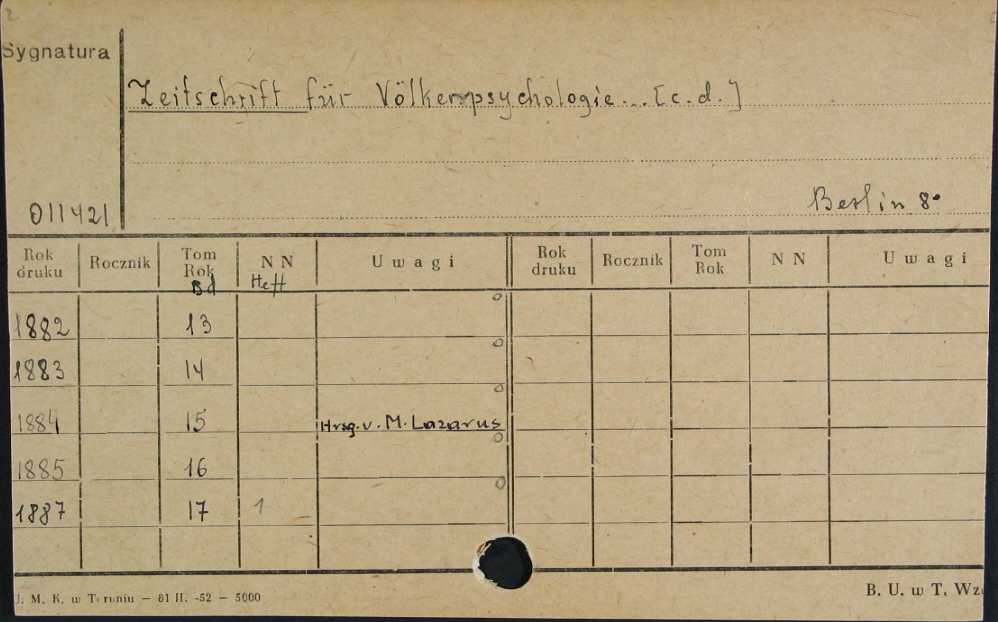 Sygnatura
Zeitschrift für Völkerpsychologie... [c.d.]
011421 Berlin 8°
Rok druku Rocznik Tom Rok Bd NN Heft Uwagi Rok druku Rocznik Tom Rok NN Uwagi
1882 13
1883 14
1884 15 Hrsg. v. M. Lazarus
1885 16
1887 17 1
U. M. K. w Toruniu — 81 II. -52 — 5000 B. U. w T.